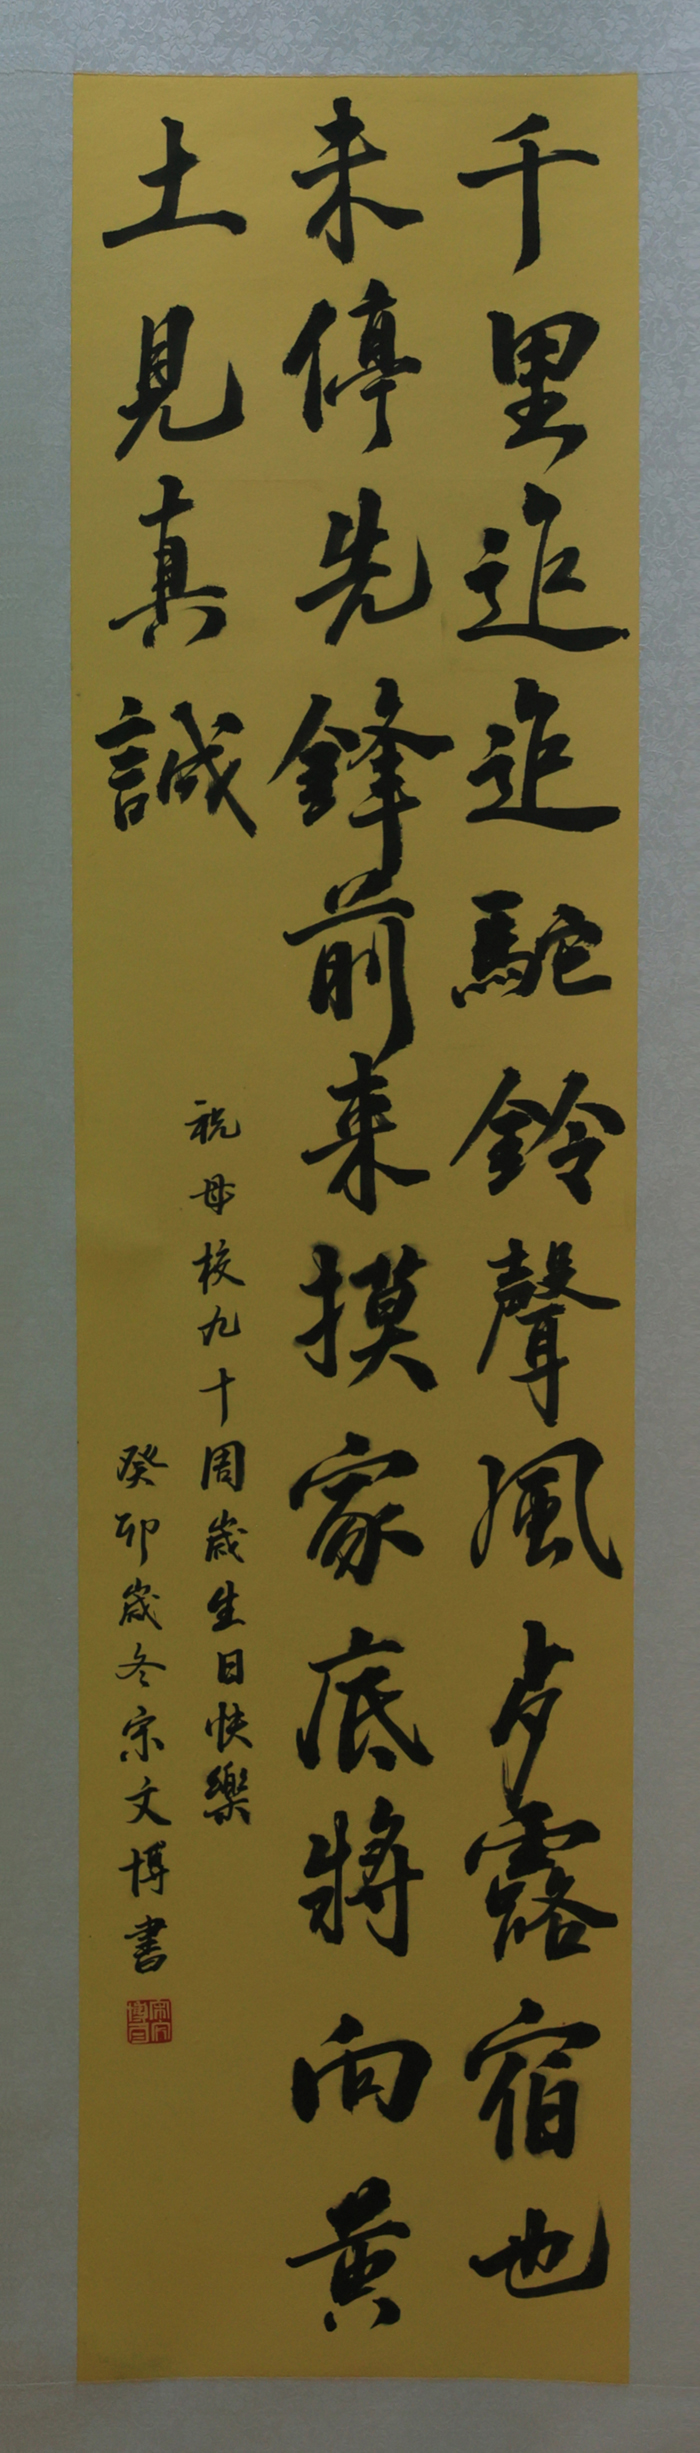 千里迢迢駝鈴聲風歺露宿也
未停先鋒前来摸家底將向黄
土見真誠
祝母校九十周歲生日快樂
癸卯歲冬宗文博書